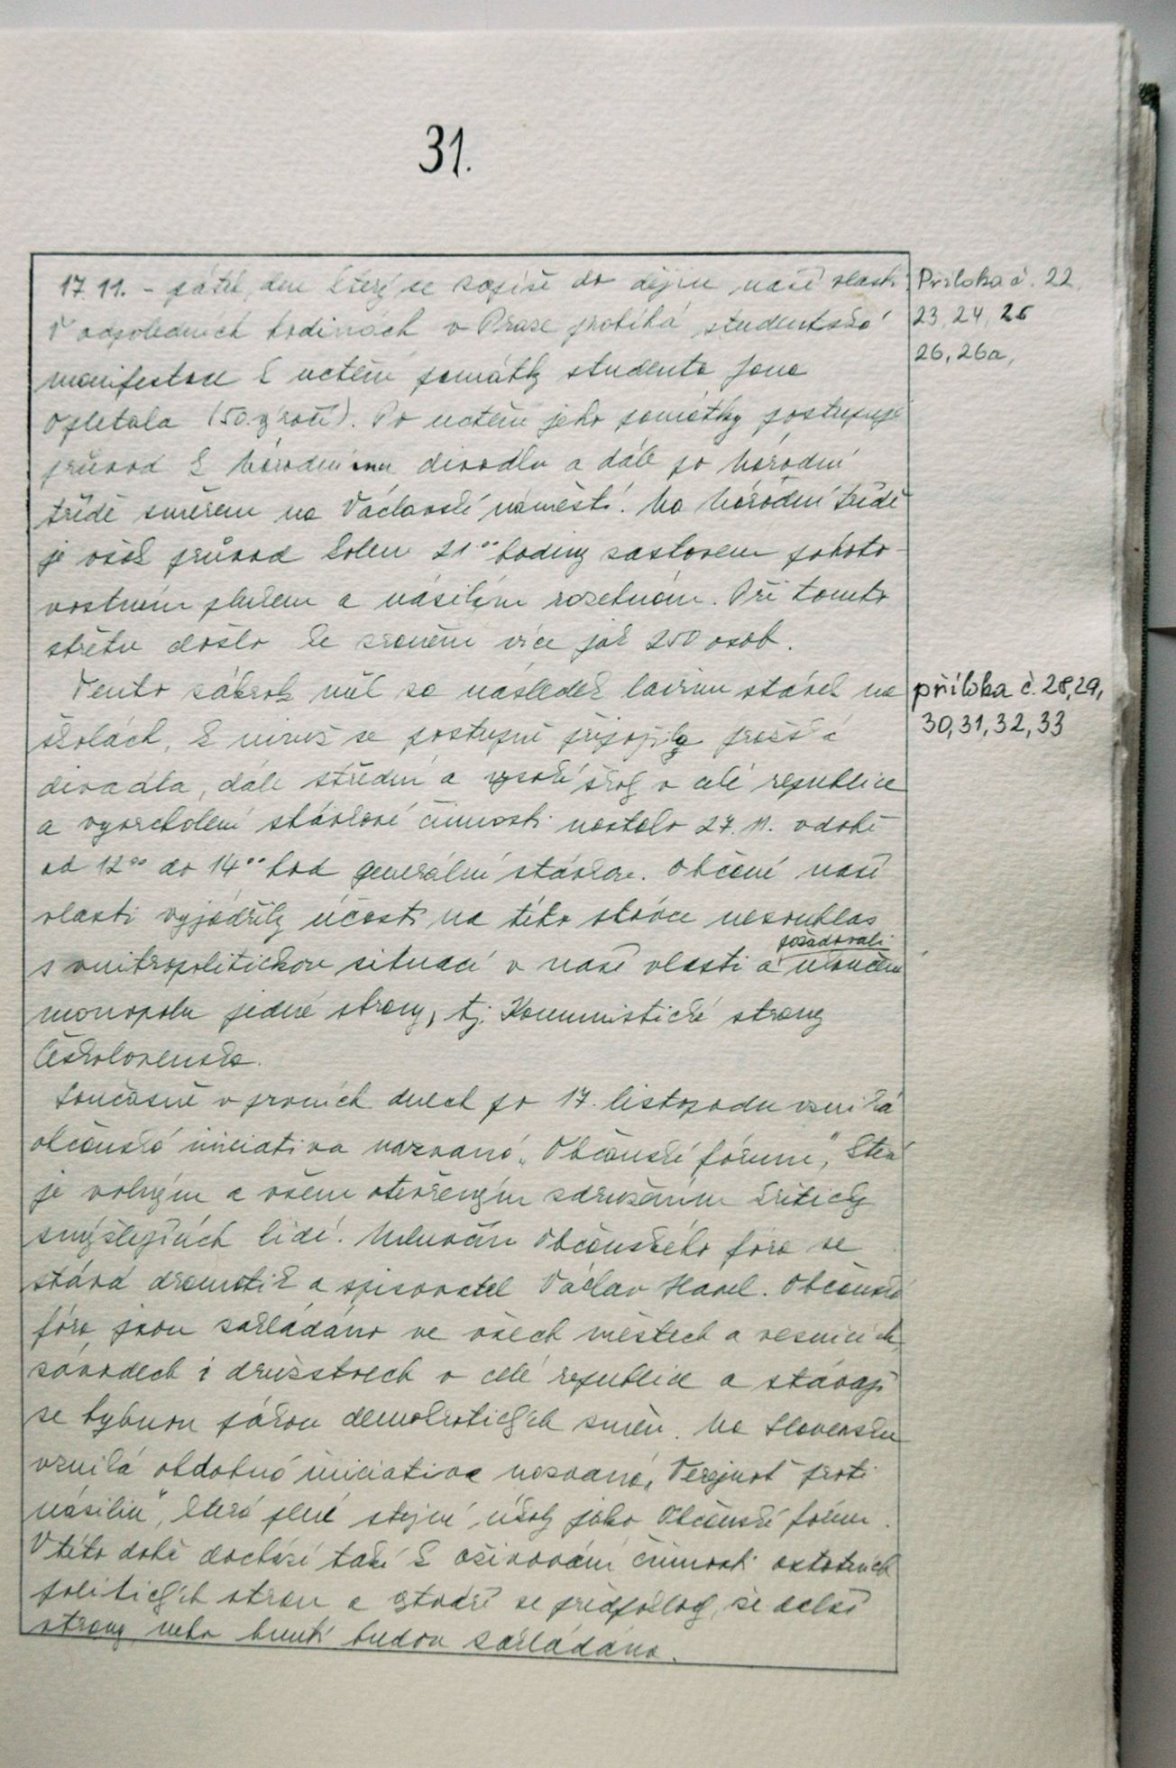 31.
17. 11. - pátek, den který se zapíše do dějin naší vlasti
V odpoledních hodinách v Praze probíhá studentská
manifestace k uctění památky studenta Jana
Opletala (50. výročí). Po uctění jeho památky postupuje
průvod k Národnímu divadlu a dále po Národní
třídě směrem na Václavské náměstí. Na Národní třídě
je však průvod kolem 21°° hodiny zastaven pohoto-
vostním plukem a násilím rozehnán. Při tomto
střetu došlo ke zranění více jak 250 osob.
Tento zákrok měl za následek lavinu stávek na
školách, k nimž se postupně připojily pražská
divadla, dále střední a vysoké školy v celé republice
a vyvrcholení stávkové činnosti nastalo 27. 11. v době
od 12°° do 14°° hod generální stávkou. Občané naší
vlasti vyjádřily účastí na této stávce nesouhlas
požadovali
s vnitropolitickou situací v naší vlasti a ukončení
monopolu jedné strany, tj. Komunistické strany
Československa.
Současně v prvních dnech po 17. listopadu vzniká
občanská iniciativa nazvaná „Občanské fórum", které
je volným a všem otevřeným sdružením kriticky
smýšlejících lidí. Mluvčím Občanského fóra se
stává dramatik a spisovatel Václav Havel. Občanské
fóra jsou zakládána ve všech městech a vesnicích
závodech i družstvech v celé republice a stávají
se hybnou pákou demokratických změn. Na Slovensku
vznikla obdobná iniciativa nazvaná „Verejnosť proti
násiliu", která plní stejné úkoly jako Občanské fórum.
V této době dochází také k oživování činnosti ostatních
politických stran a vytváří se předpoklady, že další
strany nebo hnutí budou zakládána.
Příloha č. 22,
23, 24, 25
26, 26a,
příloha č. 28, 29,
30, 31, 32, 33